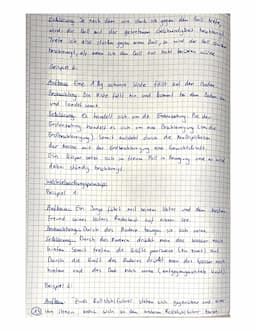 Erklärung: Je nach dem wie stark ich gegen den Ball trete
wird der Ball auf der getretenen Geschwindigkeit beschleunigt.
Trete ich also stärker gegen einen Ball, so wird der Ball stärker
beschleunigt, als wenn ich den Ball nur leicht berühren würde.
Beispiel 2:
Aufbau: Eine 1 kg schwere Kiste fällt auf den Boden
Beobachtung: Die Kiste fällt hin und kommt dem Boden
und landet somit.
Erklärung: Es handelt sich um die Erdanziehung. Bei der
Erdanziehung handelt es sich um eine Beschleunigung (an die
Erdbeschleunigung). Somit entsteht durch die Multiplikation
der Masse mit der Erdbeschleunigung eine Gewichtskraft.
Ein Körper setzt sich im freien Fall in Bewegung und er wird
dabei ständig beschleunigt.
Wechselwirkungsprinzip
Beispiel 1:
Aufbau: Ein Junge fährt mit seinem Vater und dem besten
Freund seines Vaters Ruderboot auf einem See.
Beobachtung: Durch das Rudern bewegen sie sich vorne.
Erklärung: Durch das Rudern drückt man das Wasser nach
hinten. Somit treten die Kräfte paarweise (zu zweit) auf.
Durch die Kraft des Ruderns drückt man das Wasser nach
hinten und das Boot nach vorne (entgegengesetzte Kraft).
Beispiel 2:
Aufbau: Zwei Rollstuhlfahrer stehen sich gegenüber und einer
von ihnen